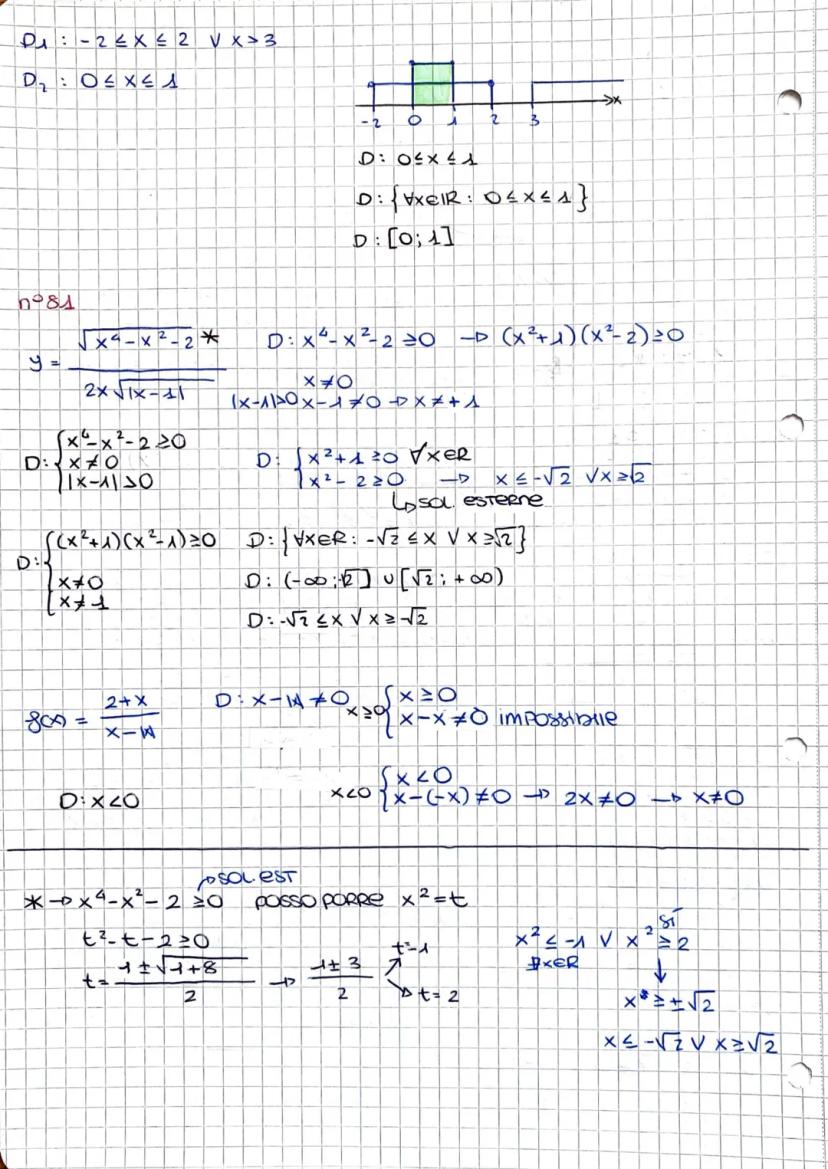 D1 : -2 ≤ x ≤ 2 ∨ x > 3
D2 : 0 ≤ x ≤ 1
-2 0 1 2 3 x
D: 0 ≤ x ≤ 1
D: {∀x∈ℝ : 0 ≤ x ≤ 1}
D: [0; 1]
n°81
y = √(x⁴-x²-2) * / 2x√|x-1|
D: x⁴-x²-2 ≥0 → (x²+1)(x²-2) ≥0
x≠0
|x-1|>0 x-1≠0 → x≠+1
D: { x⁴-x²-2 ≥0
x≠0
|x-1|>0
D: { x²+1 ≥0 ∀x∈R
x²-2 ≥0 → x ≤ -√2 ∨ x ≥ √2
↳ SOL. ESTERNE
D: { (x²+1)(x²-1) ≥0
x≠0
x≠1
D: {∀x∈R : -√2 ≤ x ∨ x ≥ √2}
D: (-∞; -√2] ∪ [√2; +∞)
D: -√2 ≤ x ∨ x ≥ -√2
f(x) = 2+x / x-|x|
D: x-|x| ≠0
x≥0 { x ≥0
x-x ≠0 IMPOSSIBILE
x<0 { x <0
x-(-x) ≠0 → 2x ≠0 → x≠0
D: x<0
→ SOL. EST
* → x⁴-x²-2 ≥0 POSSO PORRE x²=t
t²-t-2 ≥0
t = 1±√(1+8) / 2 → 1±3 / 2
t=-1
t=2
x² ≤ -1 ∨ x² ≥ 2
SÍ
∄x∈R
x ≥ ±√2
x ≤ -√2 ∨ x ≥ √2